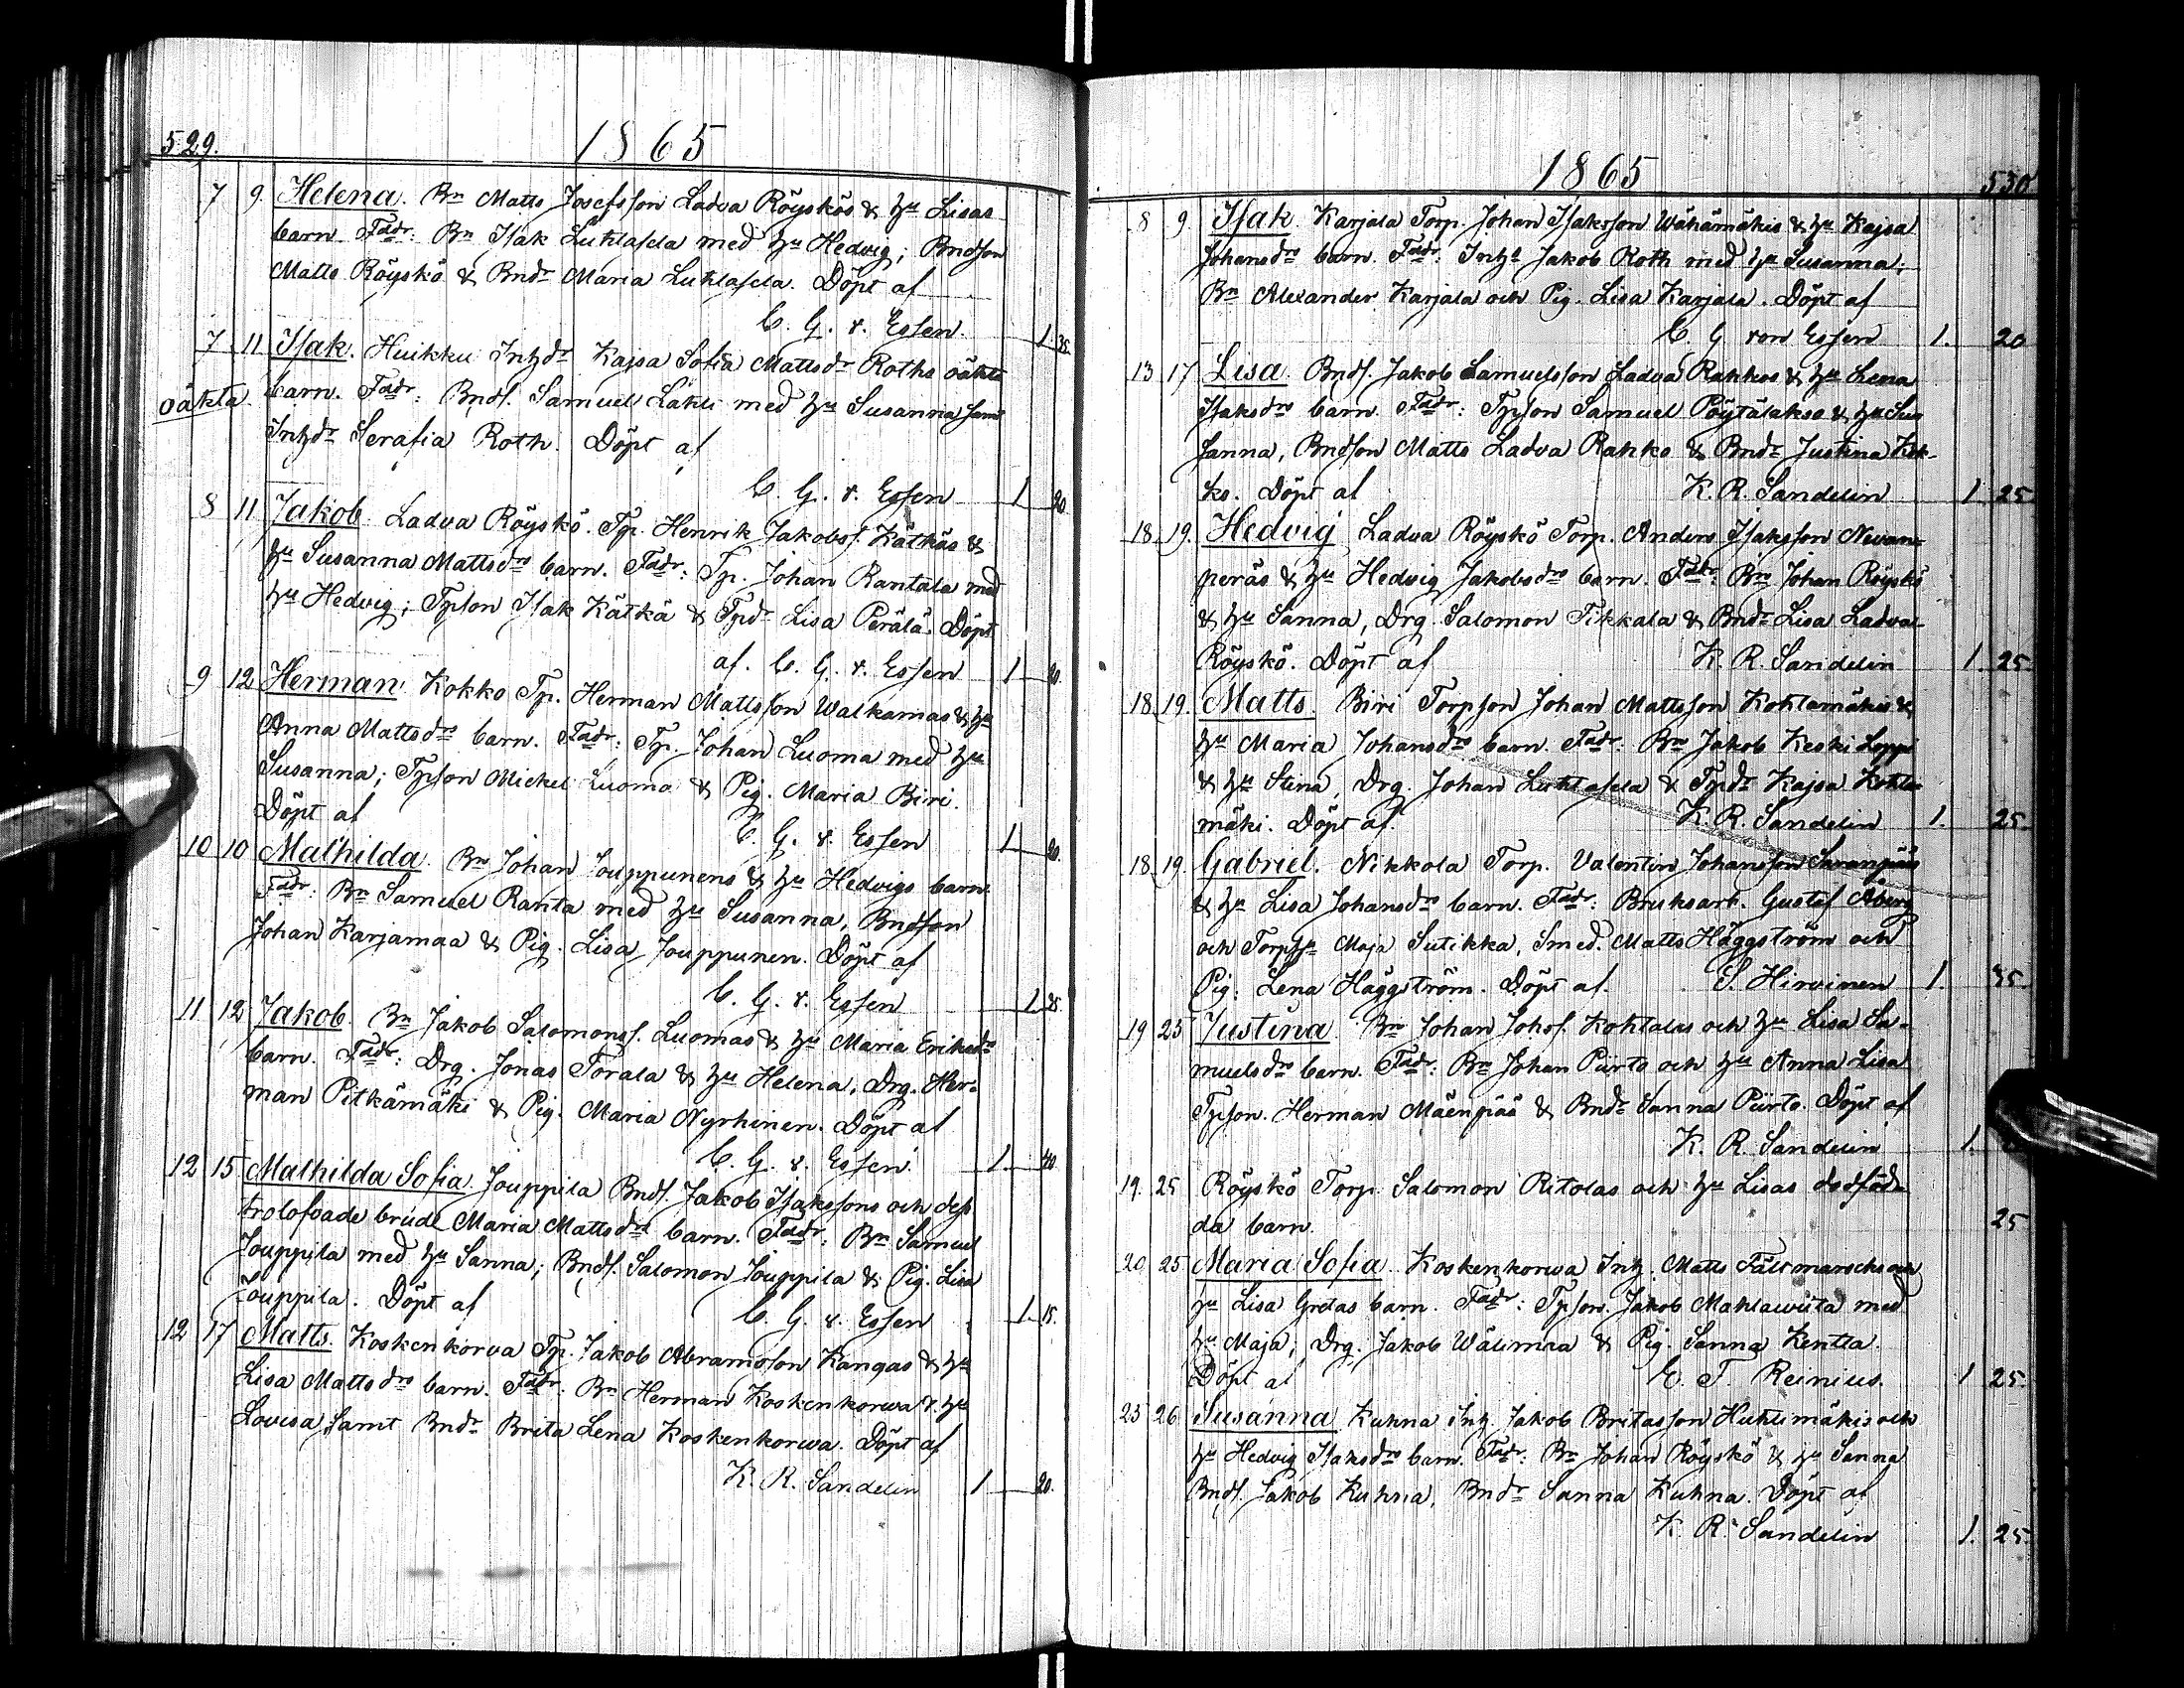 529.
1865
7 9. Helena. Bn Matts Josefsson Ladva Röyskös & hu Lisas
barn. Fadr: Bn Isak Luhtasela med hu Hedvig; Bndson
Matts Röyskö & Bndr Maria Luhtasela. Döpt af
C. G. v. Essen. 1. 35.
7 11 Isak. Huikku Inhdr Kajsa Sofia Mattsdr Roths oäkta
oäkta. barn. Fadr: Bnds. Samuel Lahti med hu Susanna samt
Inhdr Serafia Roth. Döpt af
C. G. v. Essen 1 20
8 11 Jakob. Ladva Röyskö. Tp. Henrik Jakobss. Kätkäs &
hu Susanna Mattsdrs barn. Fadr: Tp. Johan Rantala med
hu Hedvig; Tpson Isak Kätkä & Tpdr Lisa Perälä. Döpt
af. C. G. v. Essen 1 20.
9 12 Herman. Kokko Tp. Herman Mattsson Walkamas & hu
Anna Mattsdrs barn. Fadr: Tp. Johan Luoma med hu
Susanna; Tpson Mickel Luoma & Pig. Maria Biri.
Döpt af C. G. v. Essen 1 20.
10 10 Mathilda. Bn Johan Jouppunens & hu Hedvigs barn.
Fadr: Bn Samuel Ranta med hu Susanna, Bndson
Johan Karjamaa & Pig. Lisa Jouppunen. Döpt af
C. G. v. Essen 1. 35.
11 12 Jakob. Bn Jakob Salomonss. Luomas & hu Maria Eriksdrs
barn. Fadr: Drg. Jonas Törala & hu Helena, Drg. Her-
man Pitkämäki & Pig. Maria Nyrhinen. Döpt af
C. G. v. Essen. 1. 40.
12 15 Mathilda Sofia. Jouppila Bnds. Jakob Isakssons och dess
trolofvade brud Maria Mattsdrs barn. Fadr: Bn Samuel
Jouppila med hu Sanna; Bnds. Salomon Jouppila & Pig. Lisa
Jouppila. Döpt af C. G. v. Essen 1. 15.
12 17 Matts. Koskenkorva Tp. Jakob Abramsson Kangas & hu
Lisa Mattsdrs barn. Fadr: Bn Herman Koskenkorwa & hu
Lovisa, samt Bndr Brita Lena Koskenkorwa. Döpt af
K. R. Sandelin 1 20.
1865
530
8 9. Isak. Karjala Torp. Johan Isaksson Wähämäkis & hu Kajsa
Johansdrs barn. Fadr: Inhs Jakob Roth med hu Susanna;
Bn Alexander Karjala och Pig. Lisa Karjala. Döpt af
C. G von Essen 1. 20
13 17 Lisa. Bnds. Jakob Samuelsson Ladva Rahkos & hu Lena
Isaksdrs barn. Fadr: Tpson Samuel Pöytälakso & hu Su-
sanna, Bndson Matts Ladva Rahko & Bndr Justina Kok-
ko. Döpt af K. R. Sandelin 1 25
18 19. Hedvig Ladva Röyskö Torp. Anders Isaksson Nevan-
peräs & hu Hedvig Jakobsdrs barn. Fadr: Bn Johan Röyskö
& hu Sanna, Drg. Salomon Tikkala & Bndr Lisa Ladva-
Röyskö. Döpt af K. R. Sandelin 1. 25
18 19. Matts. Biri Torpson Johan Mattsson Kohtamäkis &
hu Maria Johansdrs barn. Fadr: Bn Jakob Keski Loppi
& hu Stina, Drg. Johan Luhtasela & Tpdr Kajsa Kohta-
mäki. Döpt af. K. R. Sandelin 1. 25.
18 19. Gabriel. Nikkola Torp. Valentin Johansson Savanpääs
& hu Lisa Johansdrs barn. Fadr: Bruksarb. Gustaf Åberg
och Torphu Maja Sutikka, Smed. Matts Häggström och
Pig: Lena Häggström. Döpt af. S. Hirvinen 1. 35.
19 25 Justina. Bn Johan Johss. Kohtalas och hu Lisa Sa-
muelsdrs barn. Fadr: Bn Johan Piirto och hu Anna Lisa
Tpson. Herman Mäenpää & Bndr Sanna Piirto. Döpt af
K. R. Sandelin 1.
19. 25 Röyskö Torp. Salomon Ritolas och hu Lisas dödföd-
da barn. 25
20 25 Maria Sofia. Koskenkorwa Inh. Matts Fältmarschs och
hu Lisa Gretas barn. Fadr: Tpson. Jakob Mahlawiita med
hu Maja; Drg. Jakob Wälimaa & Pig. Sanna Kentta.
Döpt af E. F. Reinius. 1 25.
25 26 Susanna Kuhna Inh. Jakob Britasson Huhtimäkis och
hu Hedvig Isaksdrs barn. Fadr: Bn Johan Röyskö & hu Sanna
Bnds. Jakob Kuhna, Bndr Sanna Kuhna. Döpt af
K. R. Sandelin 1. 25.